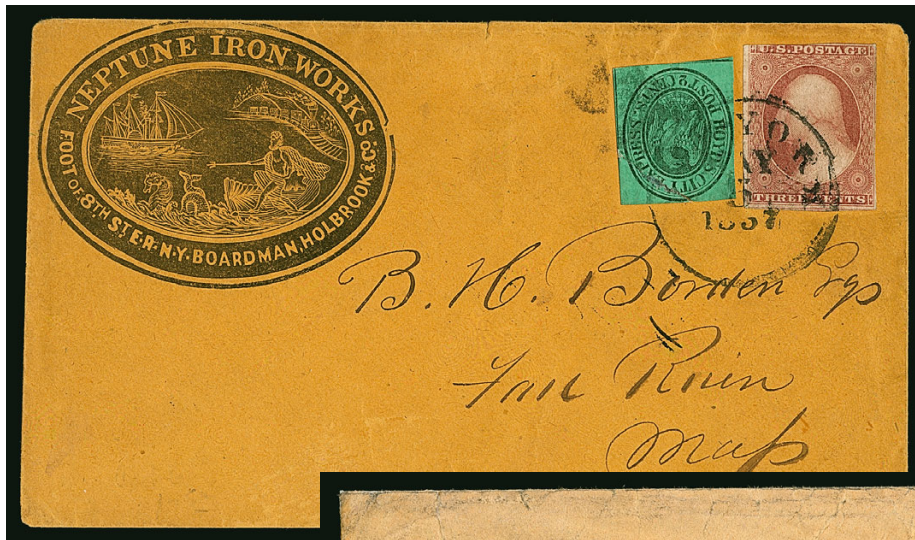 NEPTUNE IRON WORKS
FOOT OF 8TH ST. E.R. N.Y. BOARDMAN, HOLBROOK & CO.
BOYD'S CITY EXPRESS POST 2 CENTS
U.S. POSTAGE
THREE CENTS
YORK
1857
B. H. Borden Esqr
Fall River
Mass